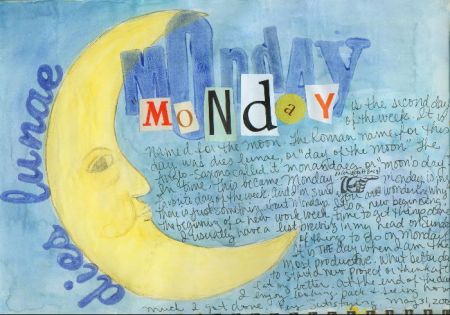 dies lunae
MONDAY
MoNdaY
is the second day
of the week. It is
named for the moon. The Roman name for this
day was dies lunae, or "day of the moon" The
Anglo-Saxons called it monandaeg or "moon's day"
In time this became Monday. Monday is my
favorite day of the week. And I'm sure you are wondering why
there is just something about Mondays. It's a new beginning
The beginning of a new work week, time to get things done
I usually have a list growing in my head on Sunday
of things to do on Monday.
It is THE day when I am the
most productive. What better day
to start a new project or
eat better. At the end of Monday
I enjoy looking back & seeing how
much I got done. It is satisfying. May 31, 200